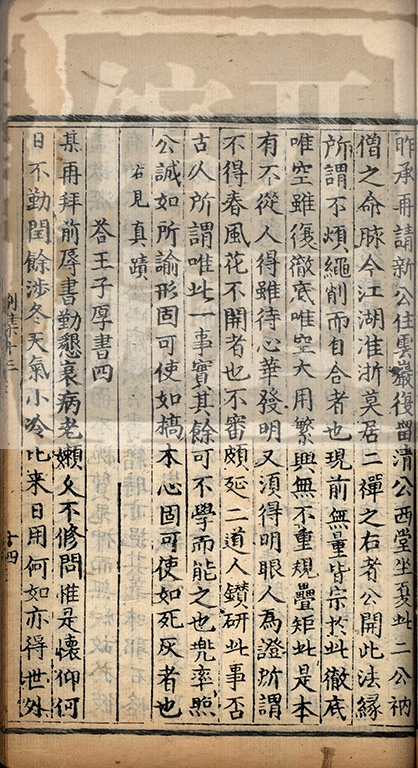 昨承再請新公住雲巖復留清公西堂坐夏此二公衲
僧之命脉今江湖淮浙莫居二禪之右者公開此法緣
所謂不煩繩削而自合者也現前無量皆宗於此徹底
唯空雖復徹底唯空大用繁興無不重規疊矩此是本
有不從人得雖待心華發明又須得明眼人為證所謂
不得春風花不開者也不審頗延二道人鑽研此事否
古人所謂唯此一事實其餘可不學而能之也兠率照
公誠如所諭形固可使如槁木心固可使如死灰者也
右見真蹟
荅王子厚書四
某再拜前辱書勤懇衰病老嬾久不修問惟是懷仰何
日不勤閏餘涉冬天氣小冷比来日用何如亦得世外
別集十三
十四